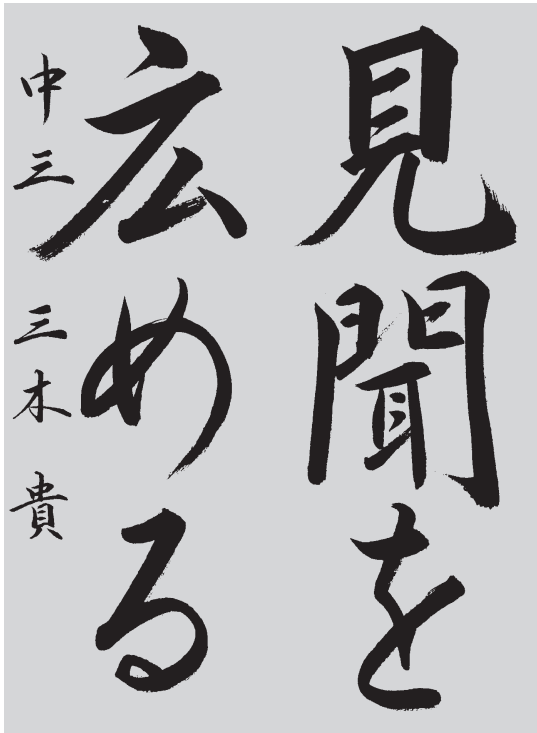 見聞を
広める
中三 三木 貴